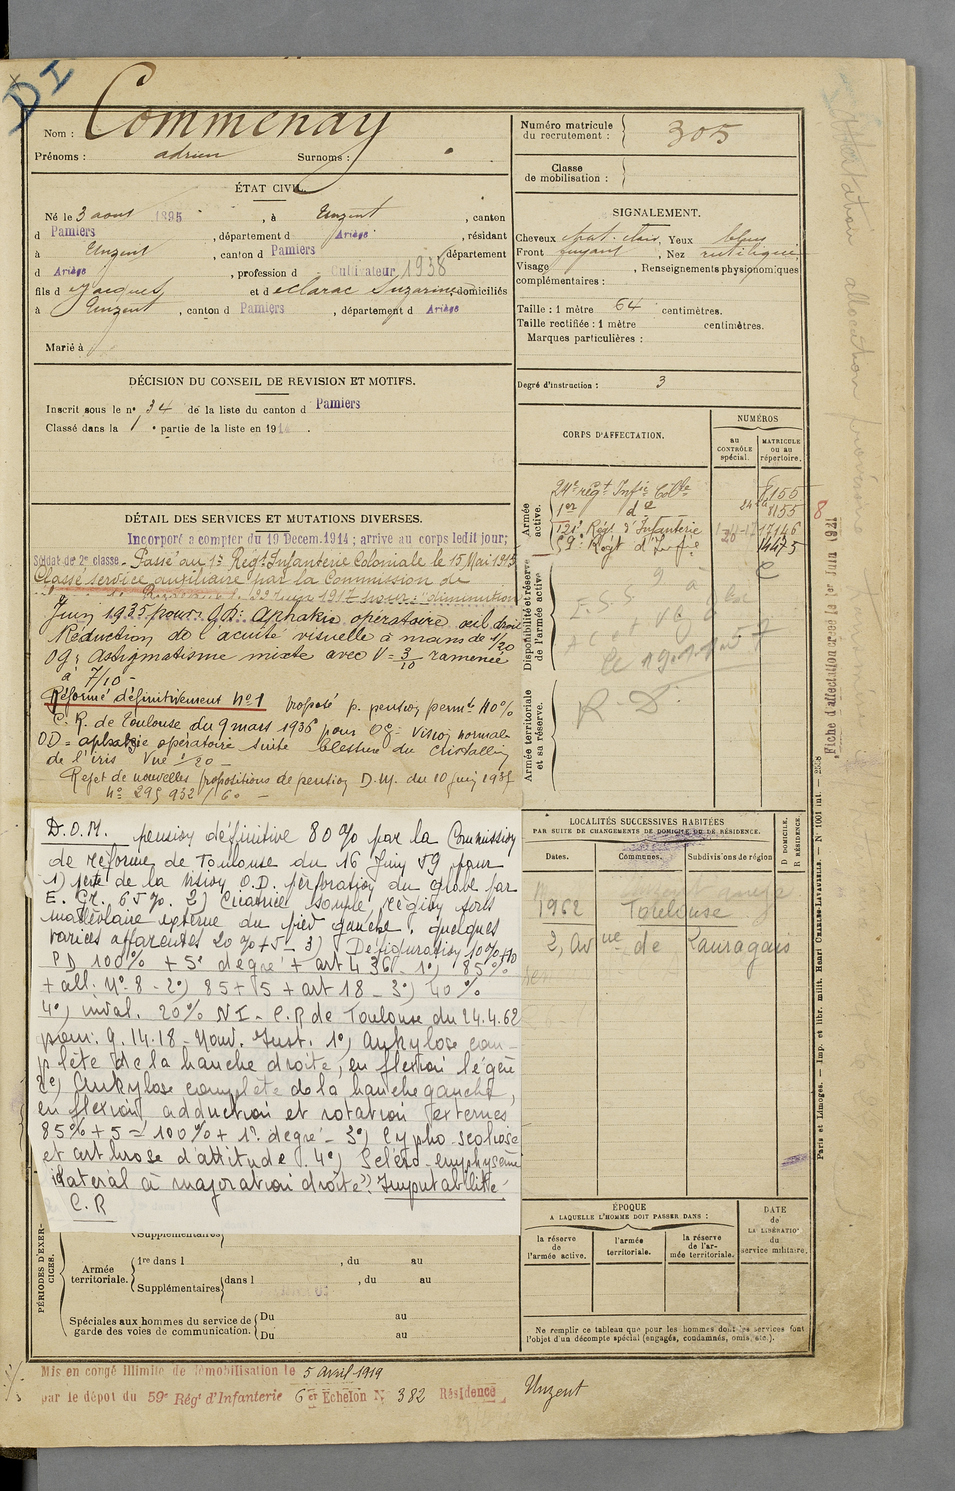 DI
Nom : Commenay
Prénoms : adrien Surnoms :
Numéro matricule du recrutement : 305
Classe de mobilisation :
ÉTAT CIVIL.
Né le 3 aout 1895, à Unzent, canton
d Pamiers, département d Ariège, résidant
à Unzent, canton d Pamiers, département
d Ariège, profession d Cultivateur 1938
fils d Jacques et d eclarac Suzanne, domiciliés
à Unzent, canton d Pamiers, département d Ariège
Marié à
SIGNALEMENT.
Cheveux chat. clair, Yeux bleus
Front fuyant, Nez rectiligne
Visage , Renseignements physionomiques
complémentaires :
Taille : 1 mètre 64 centimètres.
Taille rectifiée : 1 mètre centimètres.
Marques particulières :
Degré d'instruction : 3
DÉCISION DU CONSEIL DE REVISION ET MOTIFS.
Inscrit sous le n° 34 de la liste du canton d Pamiers
Classé dans la 1 ° partie de la liste en 191
CORPS D'AFFECTATION.
NUMÉROS
AU CONTRÔLE spécial.
MATRICULE OU AU répertoire.
Armée active.
24e régt Infie Colle 8155
1er do 8155
121e Régt d'Infanterie 17146
59e Régt d'Infie 14475
Disponibilité et réserve de l'armée active.
Le 19.1.57
Armée territoriale et sa réserve.
R.D.
8
Fiche d'affectation créée le 1er Juin 1931
DÉTAIL DES SERVICES ET MUTATIONS DIVERSES.
Incorporé a compter du 19 Decem.1914 ; arrive au corps ledit jour;
Soldat de 2e classe - Passé au 1er Régt Infanterie Coloniale le 15 Mai 1915
Classé service auxiliaire par la Commission de
Juin 1935 pour O.D: Aphakie opératoire oeil droit
Réduction de l'acuité visuelle à moins de 1/20
OG: Astigmatisme mixte avec V = 3/10 ramenée
à 7/10 -
Réformé définitivement N° 1 proposé p. pension permte 40%
C. R. de Toulouse du 9 mars 1936 pour OG: vision normale
O.D = aphakie opératoire suite blessure du cristallin
de l'iris Vue 1/20 -
Rejet de nouvelles propositions de pension D.M. du 10 juin 1937
N° 295 932 / 60 -
D.O.M. pension définitive 80% par la Commission
de réforme de Toulouse du 16 Juin 59 pour
1) perte de la vision O.D. perforation du globe par
E. Gr. 65%. 2) Cicatrice souple région sous
malléolaire externe du pied gauche, quelques
varices afférentes 20% + 5 - 3) Défiguration 10% + 10
P D 100% + 5e degré + art 4 36 - 1°) 85%
+ all. N° 8 - 2°) 85 + 5 + art 18 - 3°) 40%
4°) inval. 20% N I - C.R de Toulouse du 24.4.62
pour: G. 14.18 - Nouv. Inst. 1°) Ankylose com-
plète de la hanche droite, en flexion légère
2°) Ankylose complète de la hanche gauche,
en flexion, adduction et rotation externes
85% + 5 = 100% + 1er degré - 3°) Cypho-scoliose
et arthrose d'attitude. 4°) Scléro-emphysème
bilatéral à majoration droite". Imputabilité
C.R
LOCALITÉS SUCCESSIVES HABITÉES
PAR SUITE DE CHANGEMENTS DE DOMICILE OU DE RÉSIDENCE.
Dates. Communes. Subdivisions de région
D DOMICILE, R RÉSIDENCE.
1962 Toulouse
2, Avnue de Lauragais
PÉRIODES D'EXERCICES.
Supplémentaires
Armée territoriale.
1re dans l , du au
Supplémentaires dans l , du au
Spéciales aux hommes du service de garde des voies de communication.
Du au
Du au
ÉPOQUE
A LAQUELLE L'HOMME DOIT PASSER DANS :
la réserve de l'armée active.
l'armée territoriale.
la réserve de l'armée territoriale.
DATE de LA LIBÉRATION du service militaire.
Ne remplir ce tableau que pour les hommes dont les services font
l'objet d'un décompte spécial (engagés, condamnés, omis, etc.).
Paris et Limoges. — Imp. et libr. milit. Henri CHARLES-LAVAUZELLE. — N° 1001 int. — 2558
Mis en congé illimité de démobilisation le 5 avril 1919
par le dépot du 59e Régt d'Infanterie 6er Echelon N° 382 Résidence, Unzent